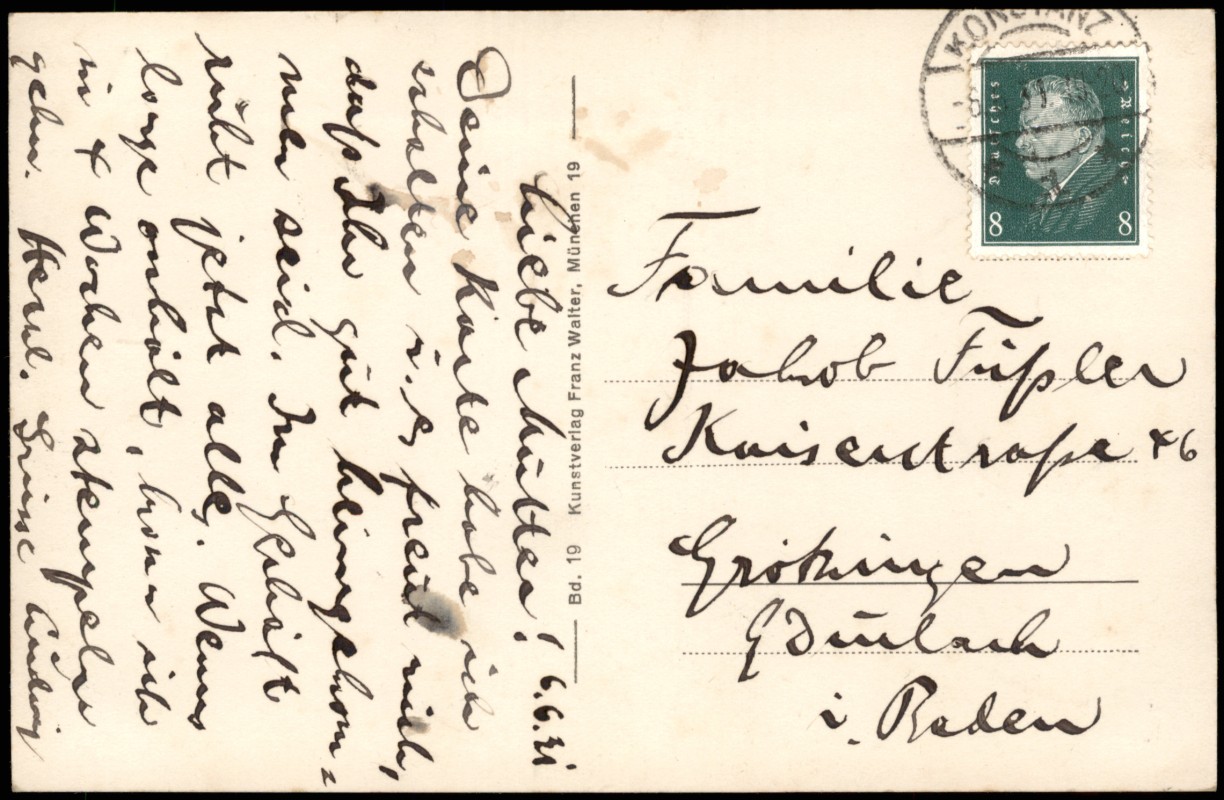 Liebe Mutter! 6.6.31
Deine Karte habe ich
erhalten u. es freut mich,
dass Ihr gut heimgekom=
men seid. Im Geschäft
ruht jetzt alles. Wenns
lange anhält, kann ich
in 4 Wochen stempeln
gehen. Herzl. Grüsse Ludwig
Bd. 19 Kunstverlag Franz Walter, München 19
KONSTANZ
Deutsches Reich
8 8
Familie
Jakob Füßler
Kaiserstraße 46
Grötzingen
b/Durlach
i. Baden